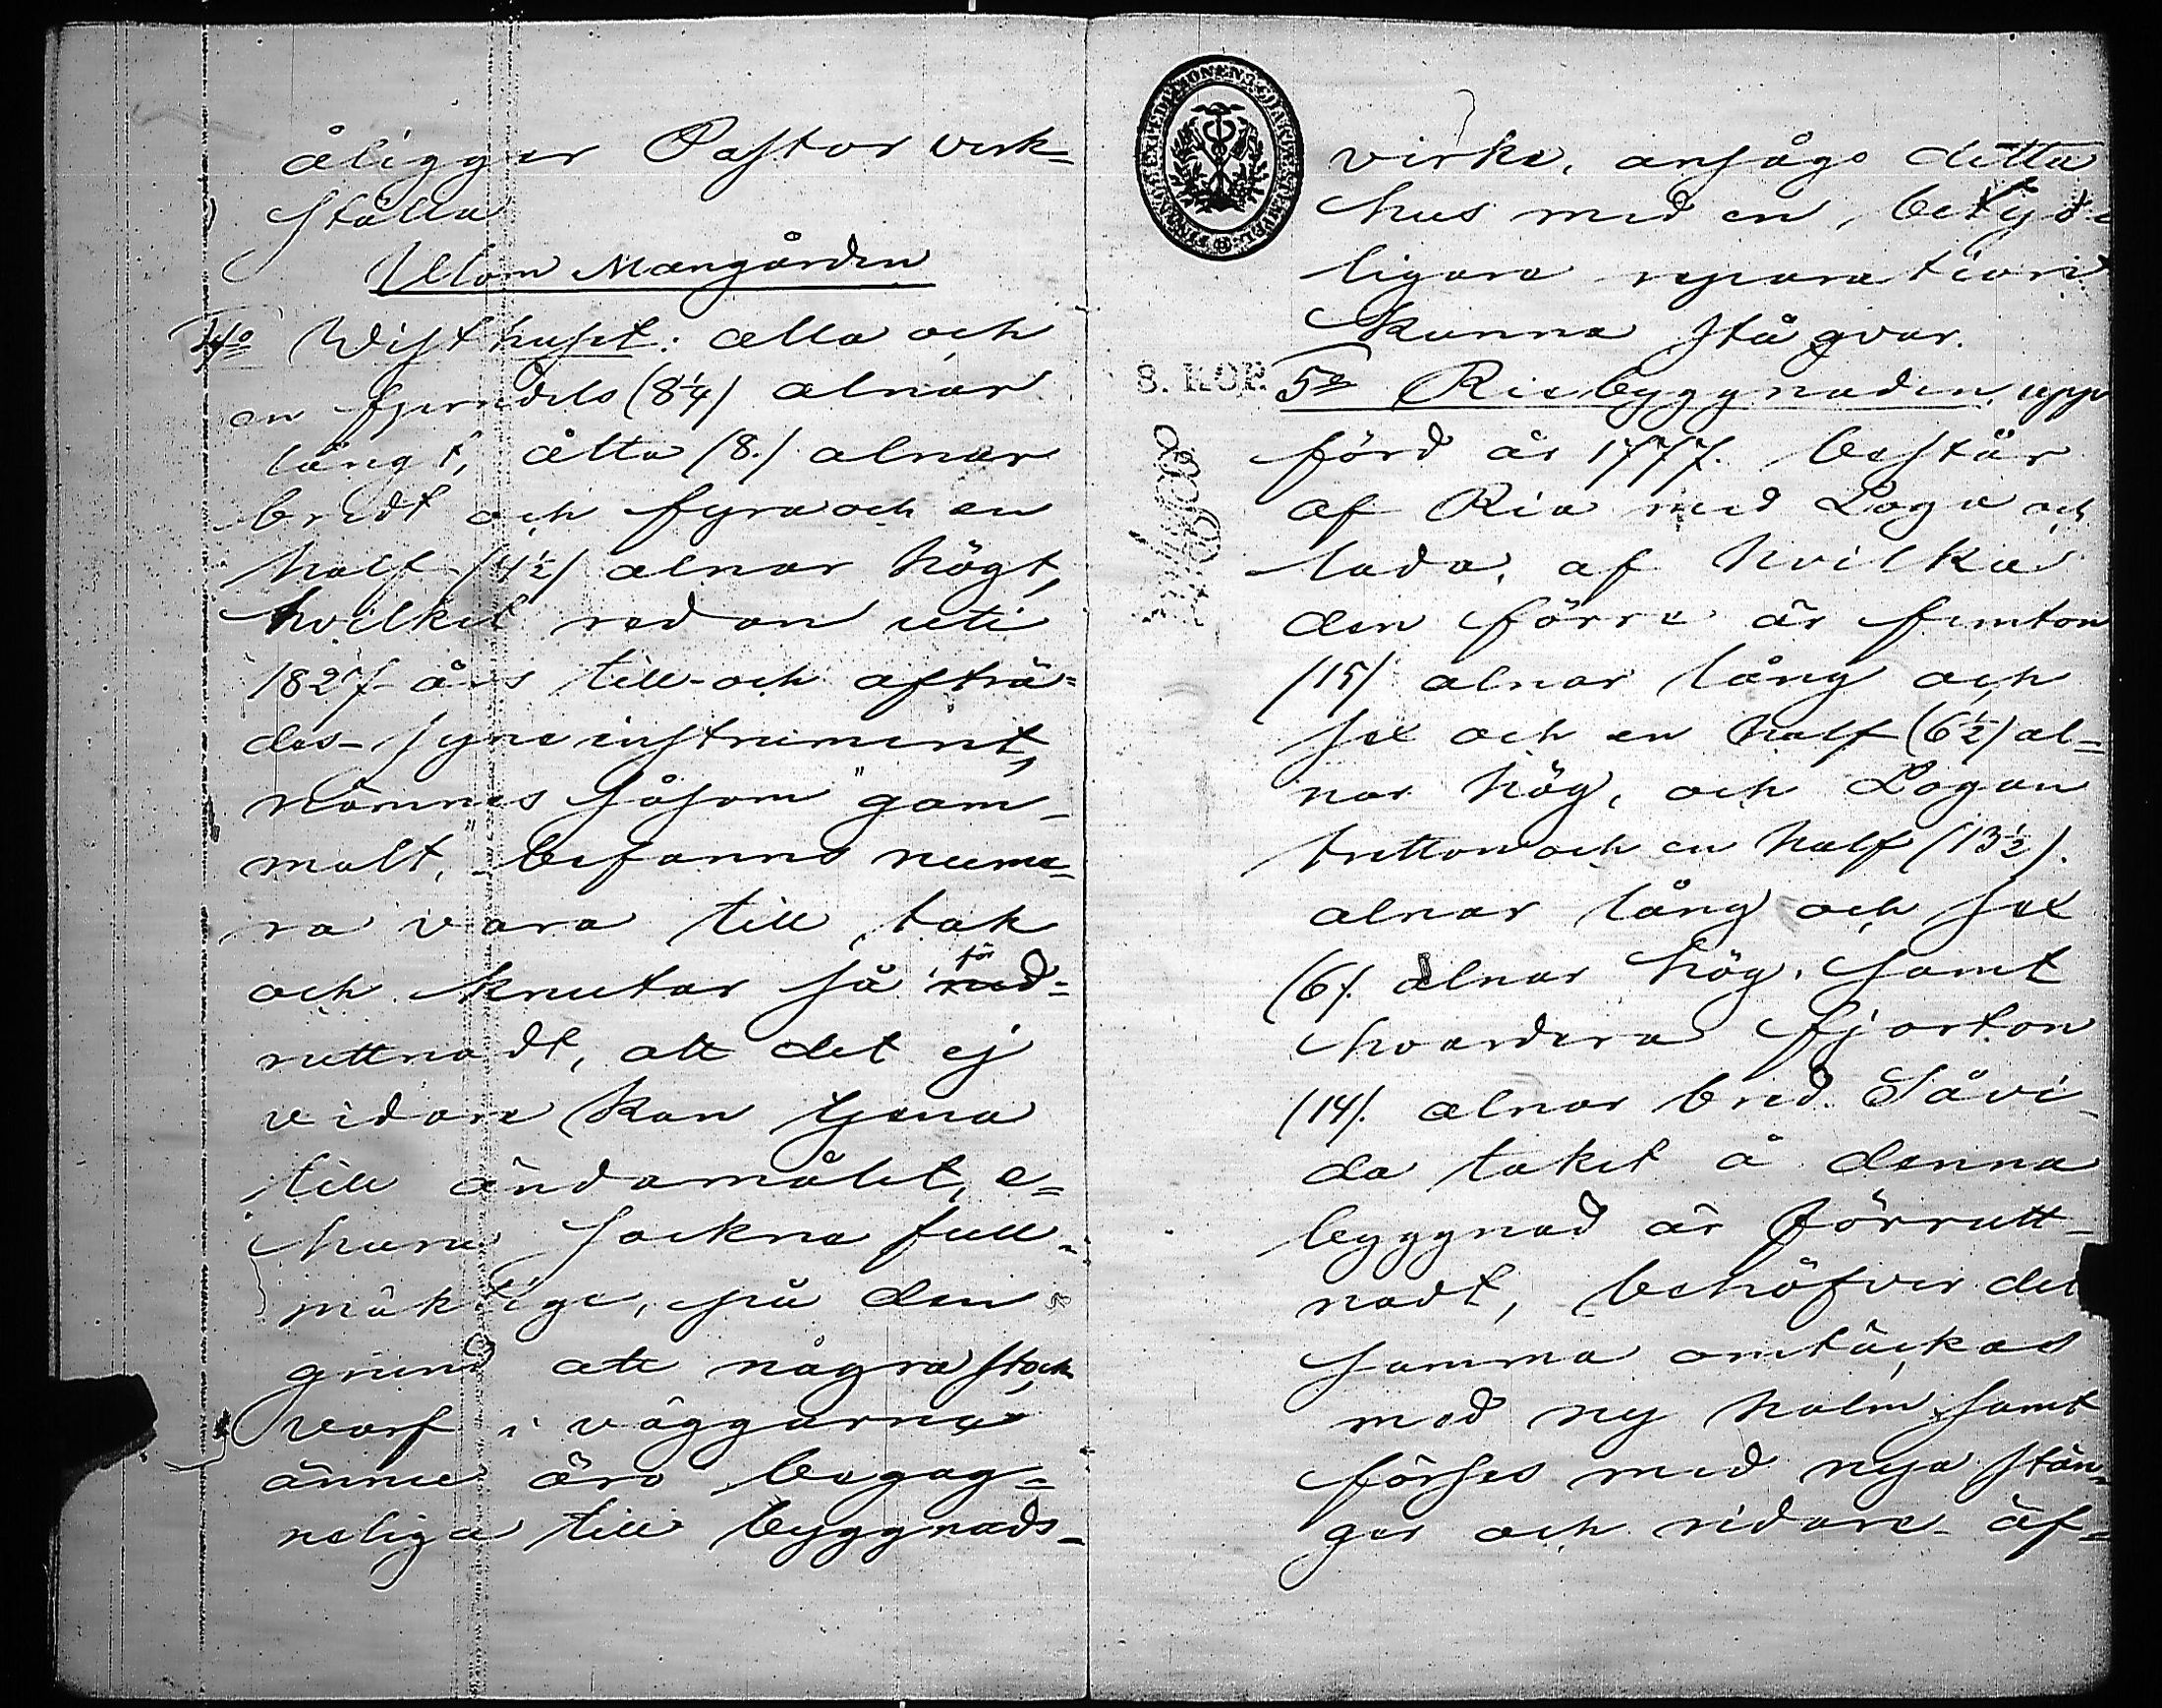 åligger Pastor verk-
ställa
Utom Mangården
4o Wisthuset: åtta och
en fjerndels (8 1/4) alnar
långt, åtta (8.) alnar
bredt och fyra och en
half (4 1/2) alnar högt,
hvilket redan uti
1827 års till- och afträ=
des- syne instrument,
nämnes såsom "gam-
malt," befanns numе=
ra vara till tak
och knutar så för=
ruttnadt, att det ej
vidare kan tjena
till ändamålet, e=
huru Sockne full-
mäktige, på den
grund att några stock
varf i väggarne
ännu äro begag=
neliga till byggnads-
virke, ansågo detta
hus med en, betyd-
ligare reparation
kunna stå qvar.
5o Riebyggnaden, upp
förd år 1777. består
af Ria med Loge och
lada, af hvilka
den förre är femton
(15) alnar lång och
sex och en half (6 1/2) al=
nar hög, och Logan
tretton och en half (13 1/2).
alnar lång och sex
(6). alnar hög, samt
hvardera fjorton
(14). alnar bred. Såvi-
da taket å denna
byggnad är förrutt-
nadt, behöfver det
samma omtäckas
med ny halm, samt
förses med nya stän-
ger och ridare- äf=
FINSKA EXPEDITIONENS CHARTÆ STÆMPEL
8. KOP.